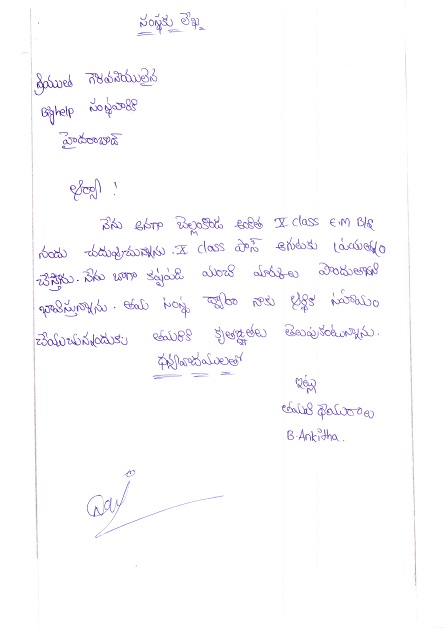 సంస్థకు లేఖ
శ్రీయుత గౌరవనీయులైన
Bighelp సంస్థవారికి
హైదరాబాద్
ఆర్యా !
నేను అనగా బెల్లంకొండ అంకిత X class E.M
నందు చదువుచున్నాను. X class పాస్ అగుటకు ప్రయత్నం
చేస్తాను. నేను బాగా కష్టపడి మంచి మార్కులు పొందుతానని
భావిస్తున్నాను. తమ సంస్థ ద్వారా నాకు ఆర్థిక సహాయం
చేయుచున్నందుకు తమరికి కృతజ్ఞతలు తెలుపుకుంటున్నాను.
ధన్యవాదములతో
ఇట్లు
తమ విధేయురాలు
B. Ankitha.